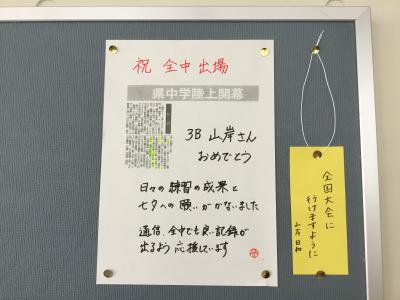 祝 全中出場
県中学陸上開幕
3B 山岸さん
おめでとう
日々の練習の成果と
七夕への願いがかないました
通信、全中でも良い記録が
出るよう応援しています
全国大会に
行けますように